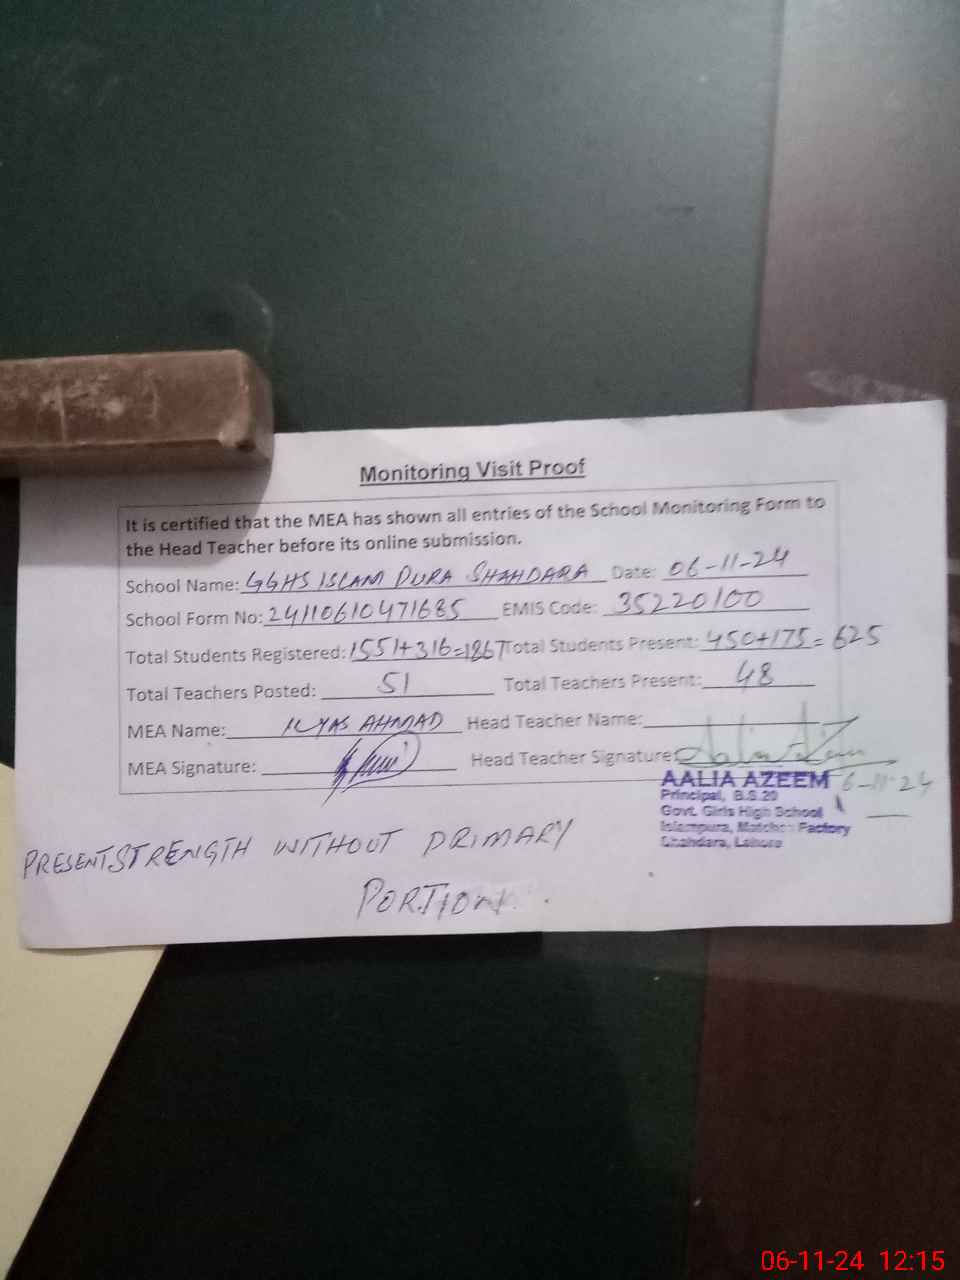 Monitoring Visit Proof
It is certified that the MEA has shown all entries of the School Monitoring Form to
the Head Teacher before its online submission.
School Name: GGHS ISLAM PURA SHAHDARA Date: 06-11-24
School Form No: 24110610471685 EMIS Code: 35220100
Total Students Registered: 1551+316=1867 Total Students Present: 450+175=625
Total Teachers Posted: 51 Total Teachers Present: 48
MEA Name: ILYAS AHMAD Head Teacher Name:
MEA Signature: Head Teacher Signature
AALIA AZEEM 6-11-24
Principal, B.S.20
Govt. Girls High School
Islampura, Factory
Lahore
PRESENT STRENGTH WITHOUT PRIMARY
PORTION
06-11-24 12:15